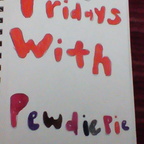 Fridays
With
Pewdiepie